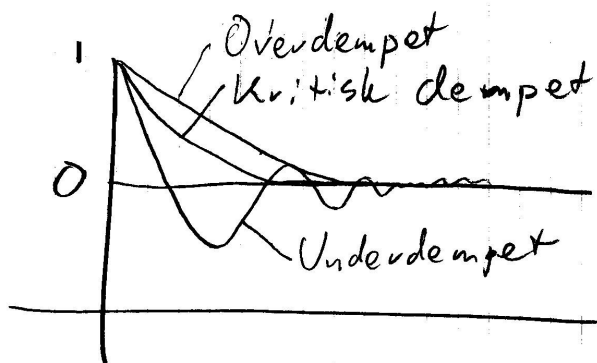 1
Overdempet
Kritisk dempet
0
Underdempet